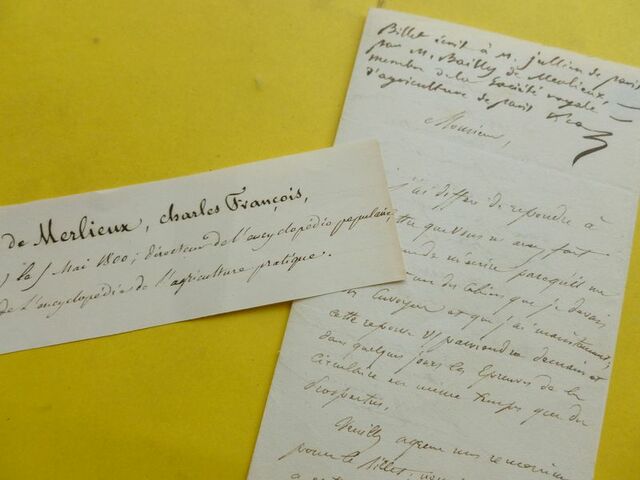 Billet écrit à M. jullien de paris
par M. Bailly de Merlieux,
membre de la Société royale
d'agriculture de paris
Monsieur,
j'ai différé de répondre à
que vous m'avez fait
de m'écrire parcequ'il me
des que je devais
envoyer et que j'ai maintenant;
cette réponse vs parviendra demain et
dans quelques jours les Épreuves de la
circulaire en même temps que du
Prospectus,
Veuillez agréer mes remerciem
pour le billet,
de Merlieux, charles François,
le 5 Mai 1800; directeur de l'encyclopédie populaire,
de l'encyclopédie de l'agriculture pratique.